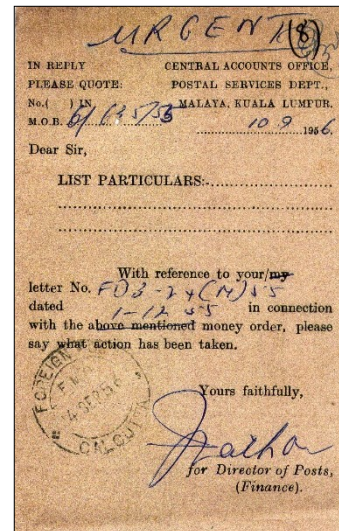 URGENT (8)
IN REPLY
PLEASE QUOTE:
No.( ) IN
M.O.B.
CENTRAL ACCOUNTS OFFICE,
POSTAL SERVICES DEPT.,
MALAYA, KUALA LUMPUR.
10 9 1956.
Dear Sir,
LIST PARTICULARS:-
With reference to your/my
letter No.
dated 1-12 55 in connection
with the above mentioned money order, please
say what action has been taken.
FOREIGN
CALCUTTA
Yours faithfully,
for Director of Posts,
(Finance).